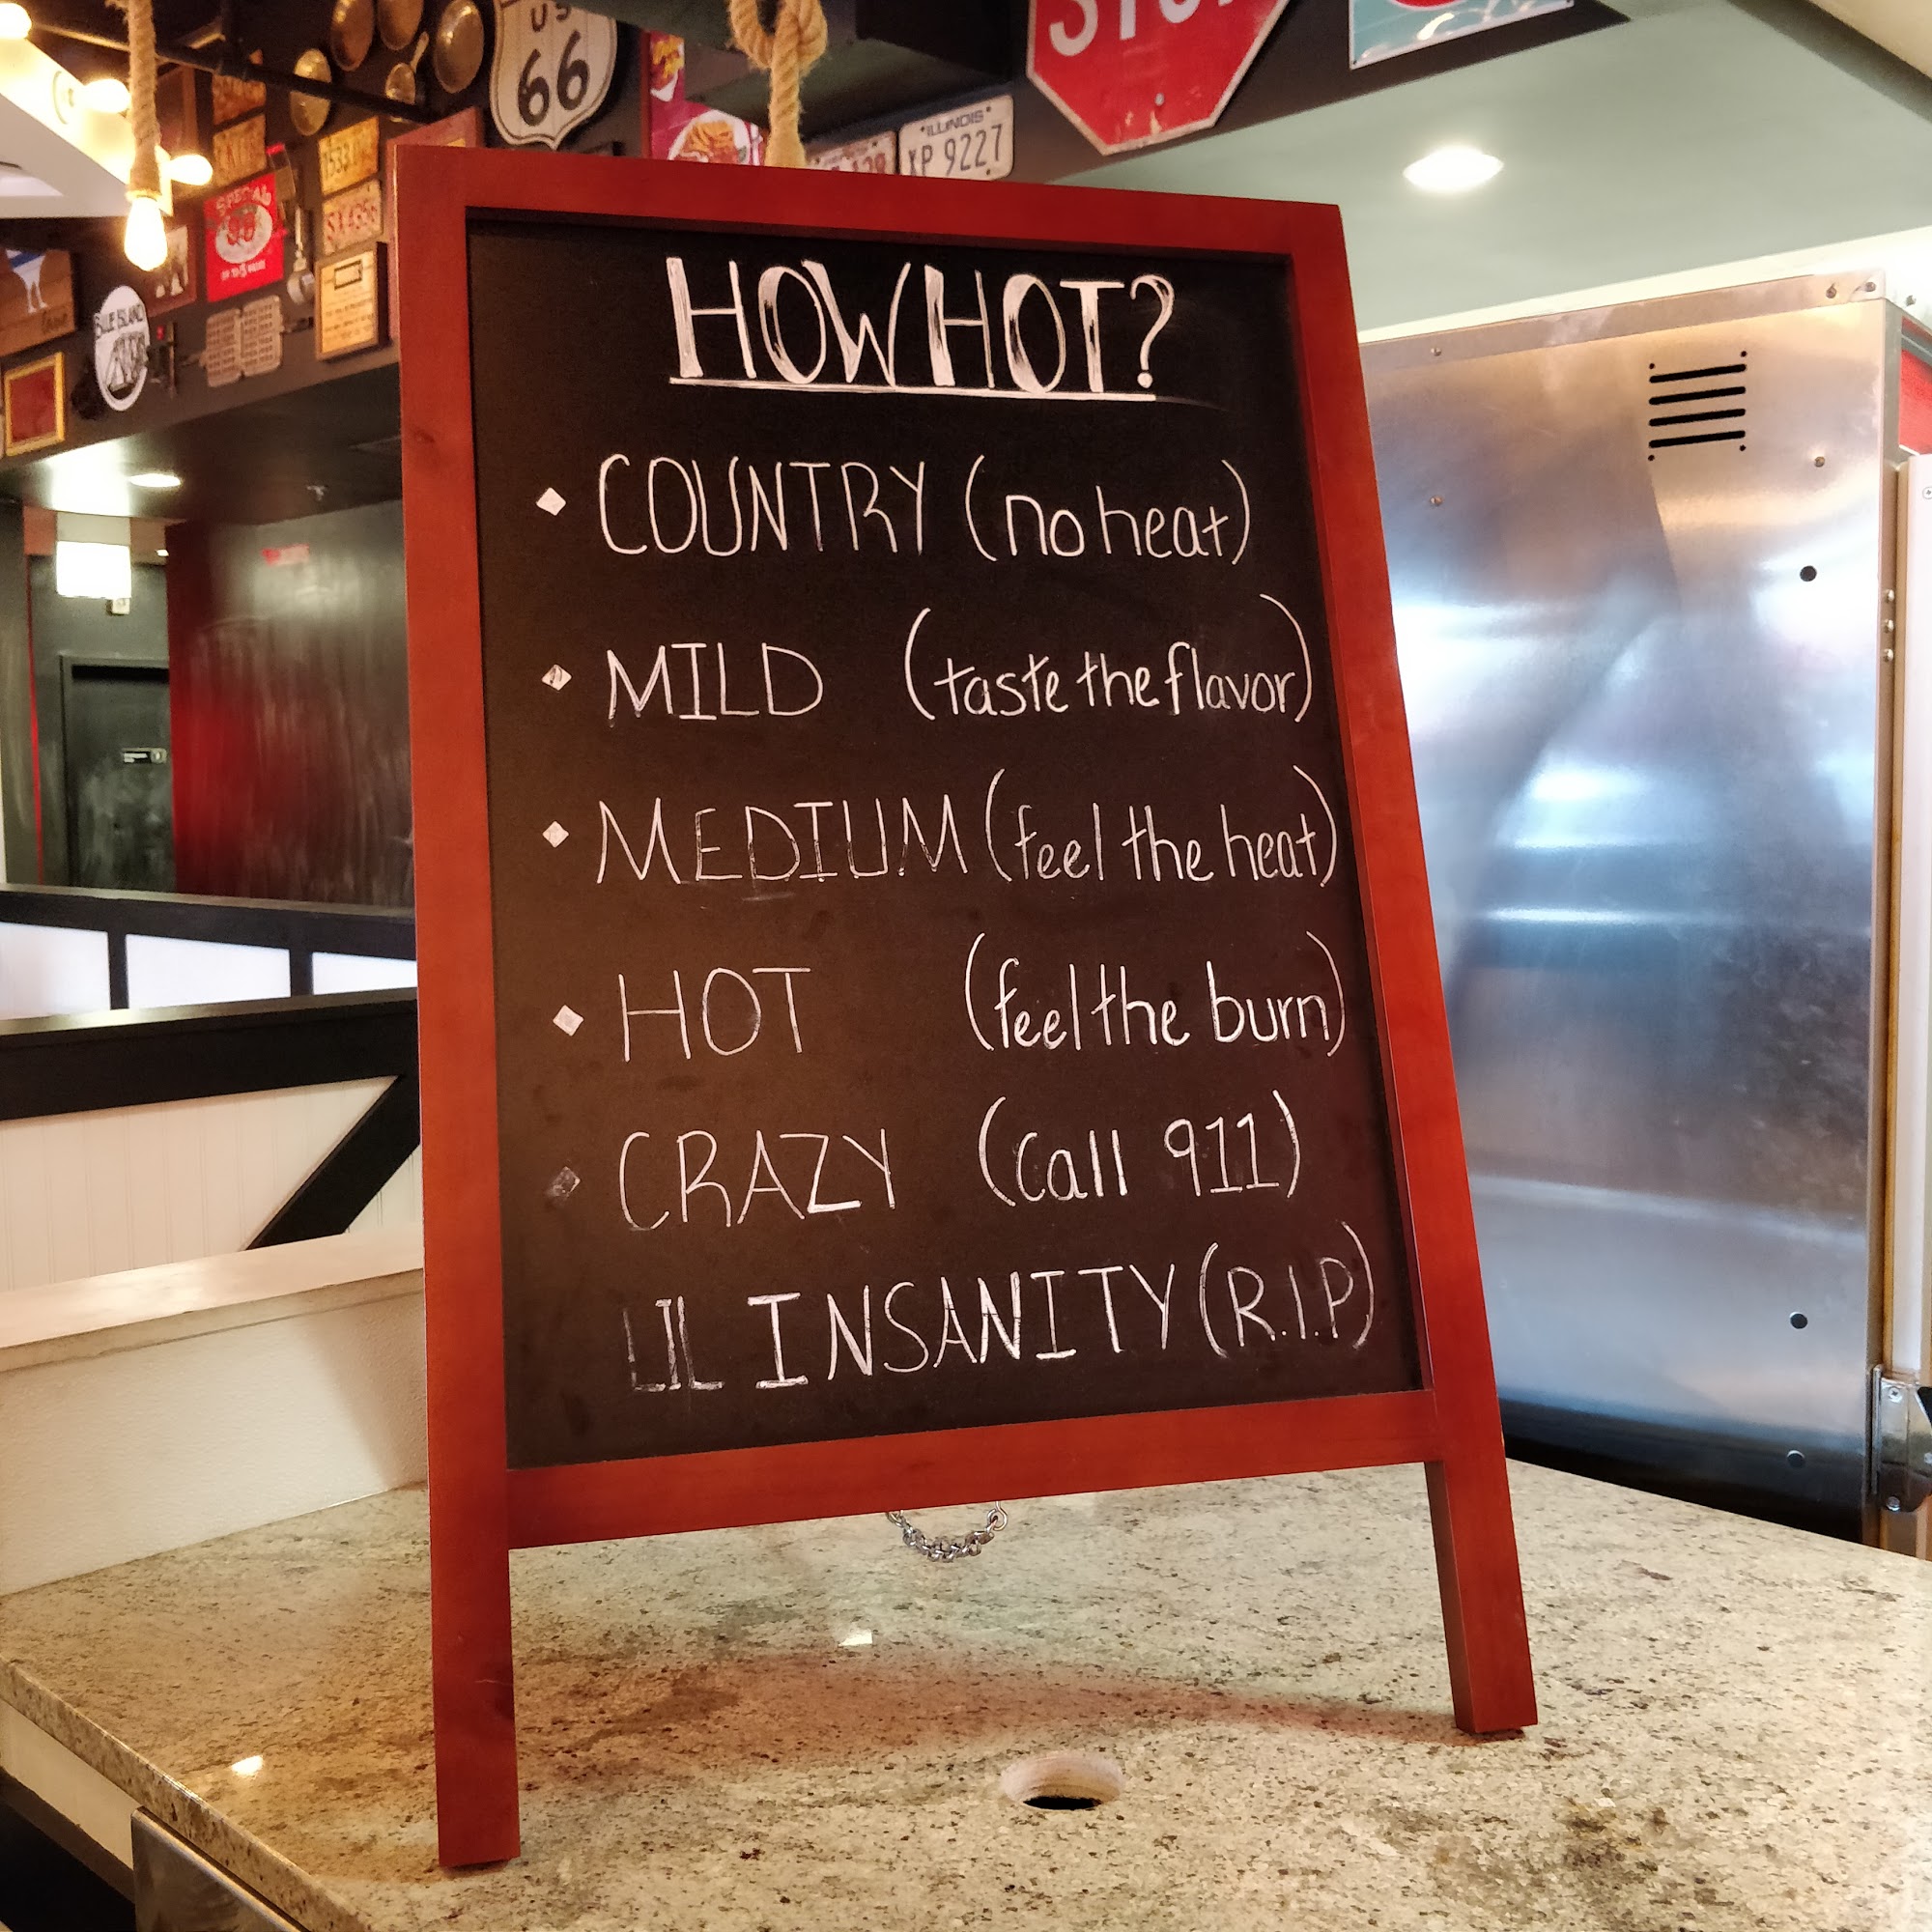 US
66
STOP
ILLINOIS
XP 9227
SPECIAL
99¢
SX4356
BLUE ISLAND
HOW HOT?
COUNTRY (no heat)
MILD (taste the flavor)
MEDIUM (feel the heat)
HOT (feel the burn)
CRAZY (call 911)
LIL INSANITY (R.I.P)